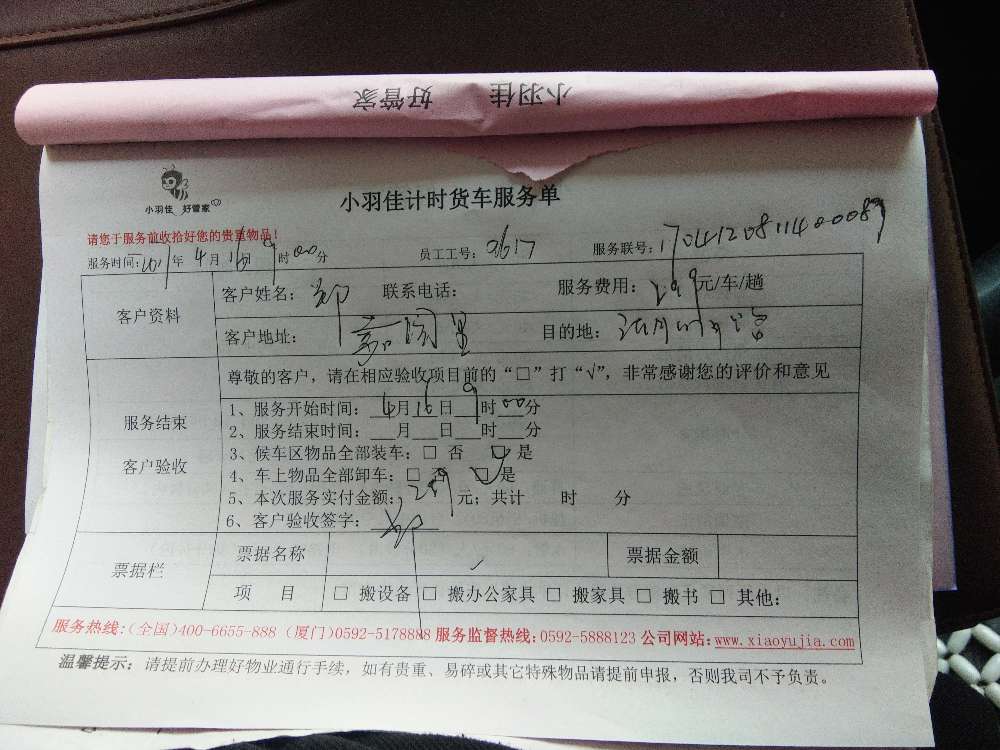 小羽佳 好管家
小羽佳 好管家
小羽佳计时货车服务单
请您于服务前收拾好您的贵重物品!
服务时间: 年4月16日9时00分 员工工号: 0617 服务联号: 1704120811400089
客户资料
客户姓名: 郑 联系电话: 服务费用: 299元/车/趟
客户地址: 嘉园里 目的地:
尊敬的客户，请在相应验收项目前的“□”打“√”，非常感谢您的评价和意见
服务结束
客户验收
1、服务开始时间: 4月16日9时00分
2、服务结束时间: ___月___日___时___分
3、候车区物品全部装车: □ 否 □ 是
4、车上物品全部卸车: □ 否 □ 是
5、本次服务实付金额: 299元; 共计 时 分
6、客户验收签字: 郑
票据栏
票据名称 票据金额
项 目 □ 搬设备 □ 搬办公家具 □ 搬家具 □ 搬书 □ 其他:
服务热线:(全国)400-6655-888 (厦门)0592-5178888 服务监督热线:0592-5888123 公司网站:www.xiaoyujia.com
温馨提示: 请提前办理好物业通行手续，如有贵重、易碎或其它特殊物品请提前申报，否则我司不予负责。